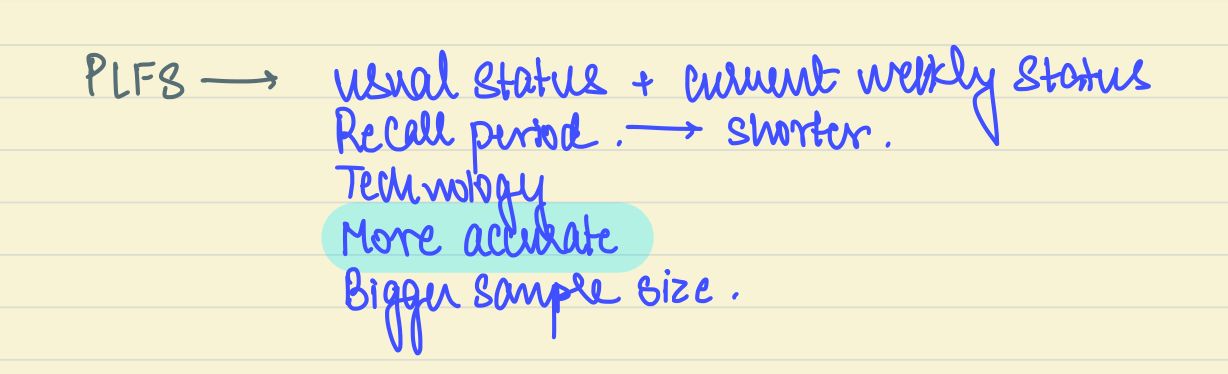 PLFS → usual status + current weekly status
Recall period. → shorter.
Technology
More accurate
Bigger sample size.